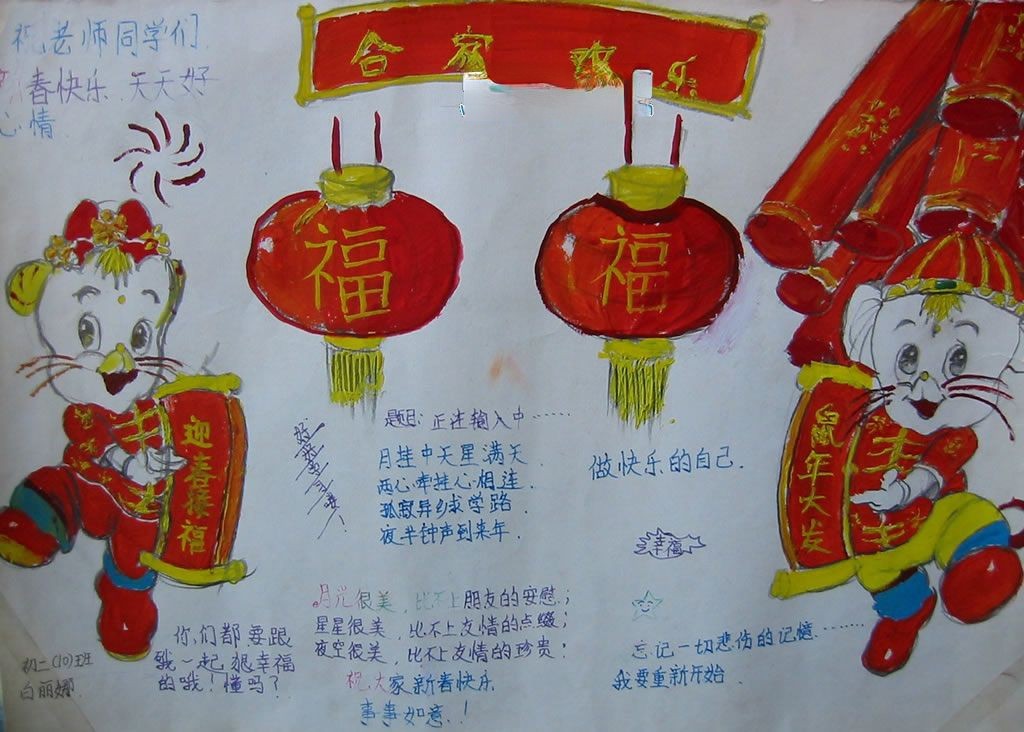 祝老师同学们
春快乐.天天好
心情
合家欢乐
福
福
迎春接福
鼠年大发
题目:正在输入中……
月挂中天星满天.
两心牵挂心相连.
孤寂异乡求学路.
夜半钟声到来年.
做快乐的自己.
幸福
月光很美,比不上朋友的安慰;
星星很美,比不上友情的点缀;
夜空很美,比不上友情的珍贵;
祝大家新春快乐
事事如意.!
你们都要跟
我一起很幸福
的哦?懂吗?
忘记一切悲伤的记憶………
我要重新开始.
初二(10)班
白丽娜.